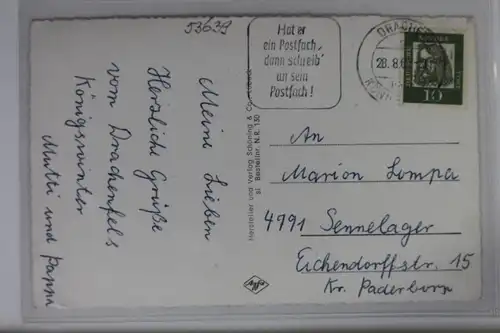 53639
Meine Lieben
Herzliche Grüße
vom Drachenfels
Königswinter
Mutti und Pappi
Hersteller und Verlag Schöning & Co.
Bestellnr. N.R. 130
Hat er
ein Postfach,
dann schreib'
an sein
Postfach!
28.8.6
10
An
Marion Lomper
4991 Sennelager
Eichendorffstr. 15
Kr. Paderborn